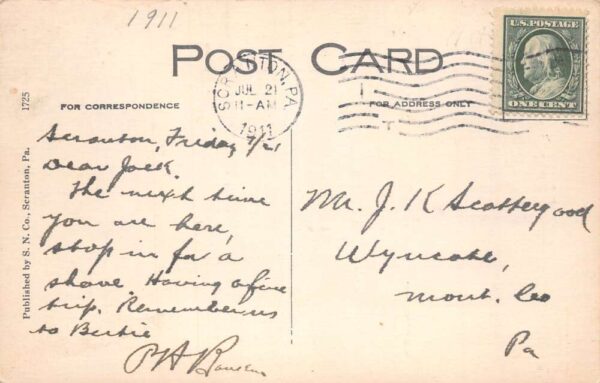 1911
POST CARD
U.S. POSTAGE
ONE CENT
SCRANTON, PA.
JUL 21
11-AM
1911
FOR CORRESPONDENCE
FOR ADDRESS ONLY
1725
Published by S. N. Co., Scranton, Pa.
Scranton, Friday 7/21
Dear Jack.
The next time
you are here,
stop in for a
shave. Having a fine
trip. Remember us
to Bertie
Mr. J. K Scattergood
Wyncote,
Mont. Co
Pa